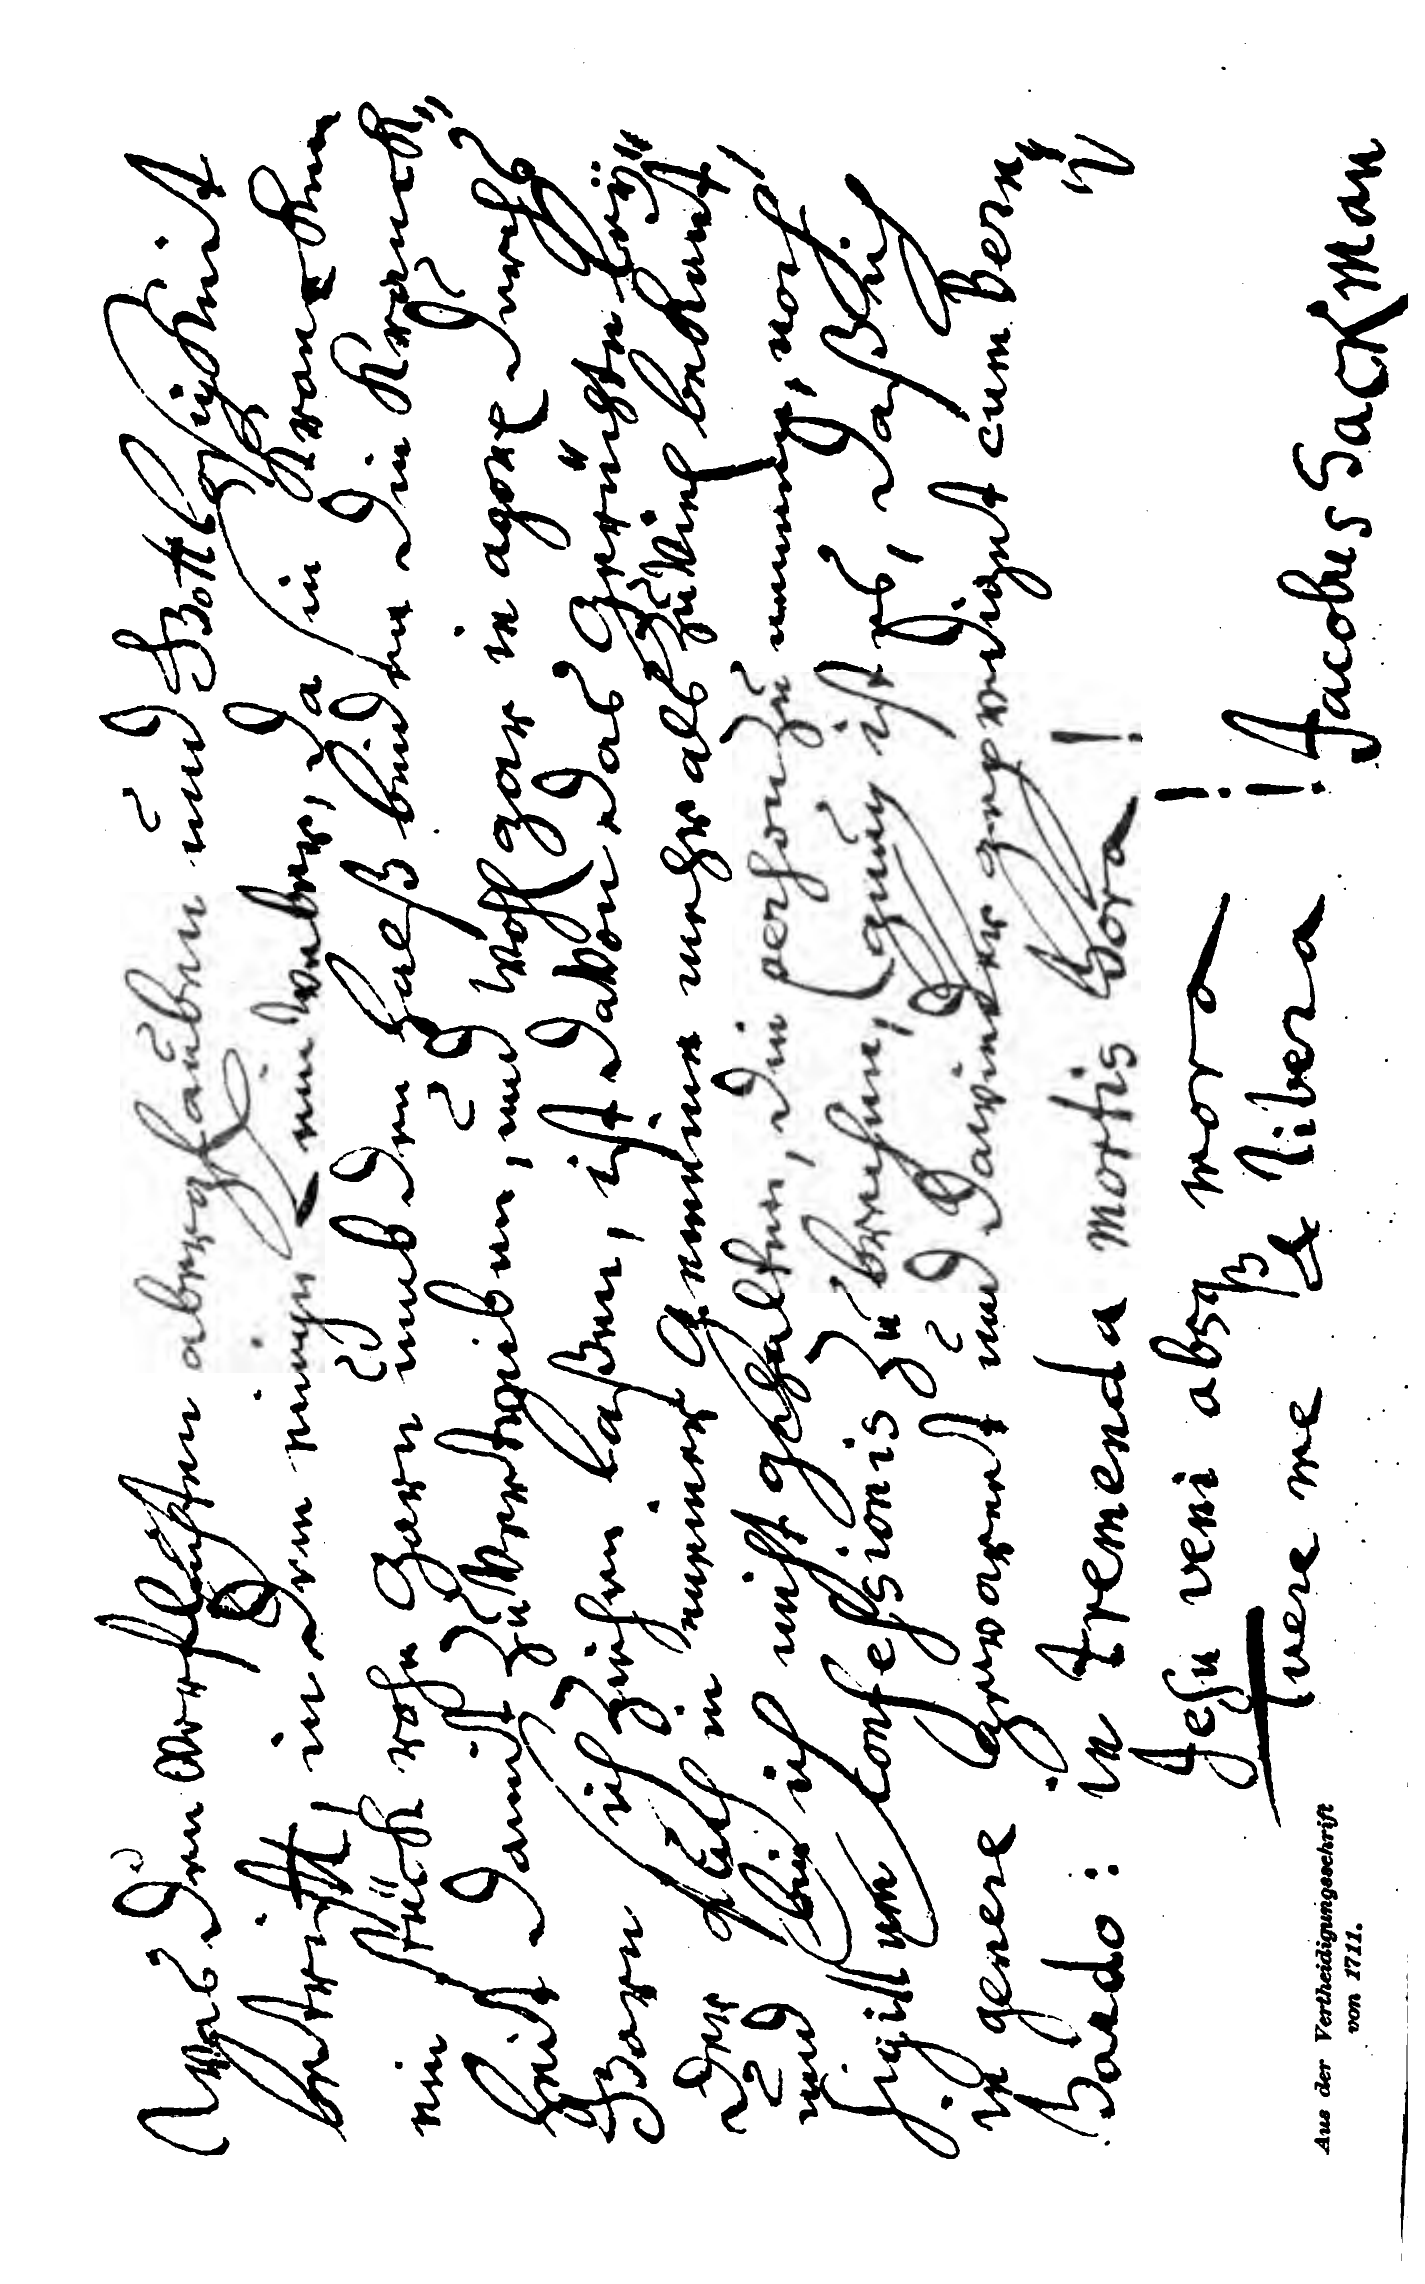 Was den verfluchten aberglauben und Gottlosigkeit
betrifft, in dem einige, wie weber, da sie krancken
ein stück rohe Garn umb den Halß binden die Kranck„
heit damit zu vertreiben, und wohl gar in agone durchs
Garn sich ziehen laßen, ist davon das Gerücht in
der gemeine mehr als zu viel bekant,
und bin ich nicht gehalten, die persohn zu nennen, noch
sigillum confessionis zu brechen, genug ist es, daß ich
in genere gewarnet und dawieder geprediget cum Bern„
hardo: in tremenda mortis hora!
Jesu veni absq mora!
tuere me & libera! Jacobus Sackman
Aus der Vertheidigungsschrift
von 1711.